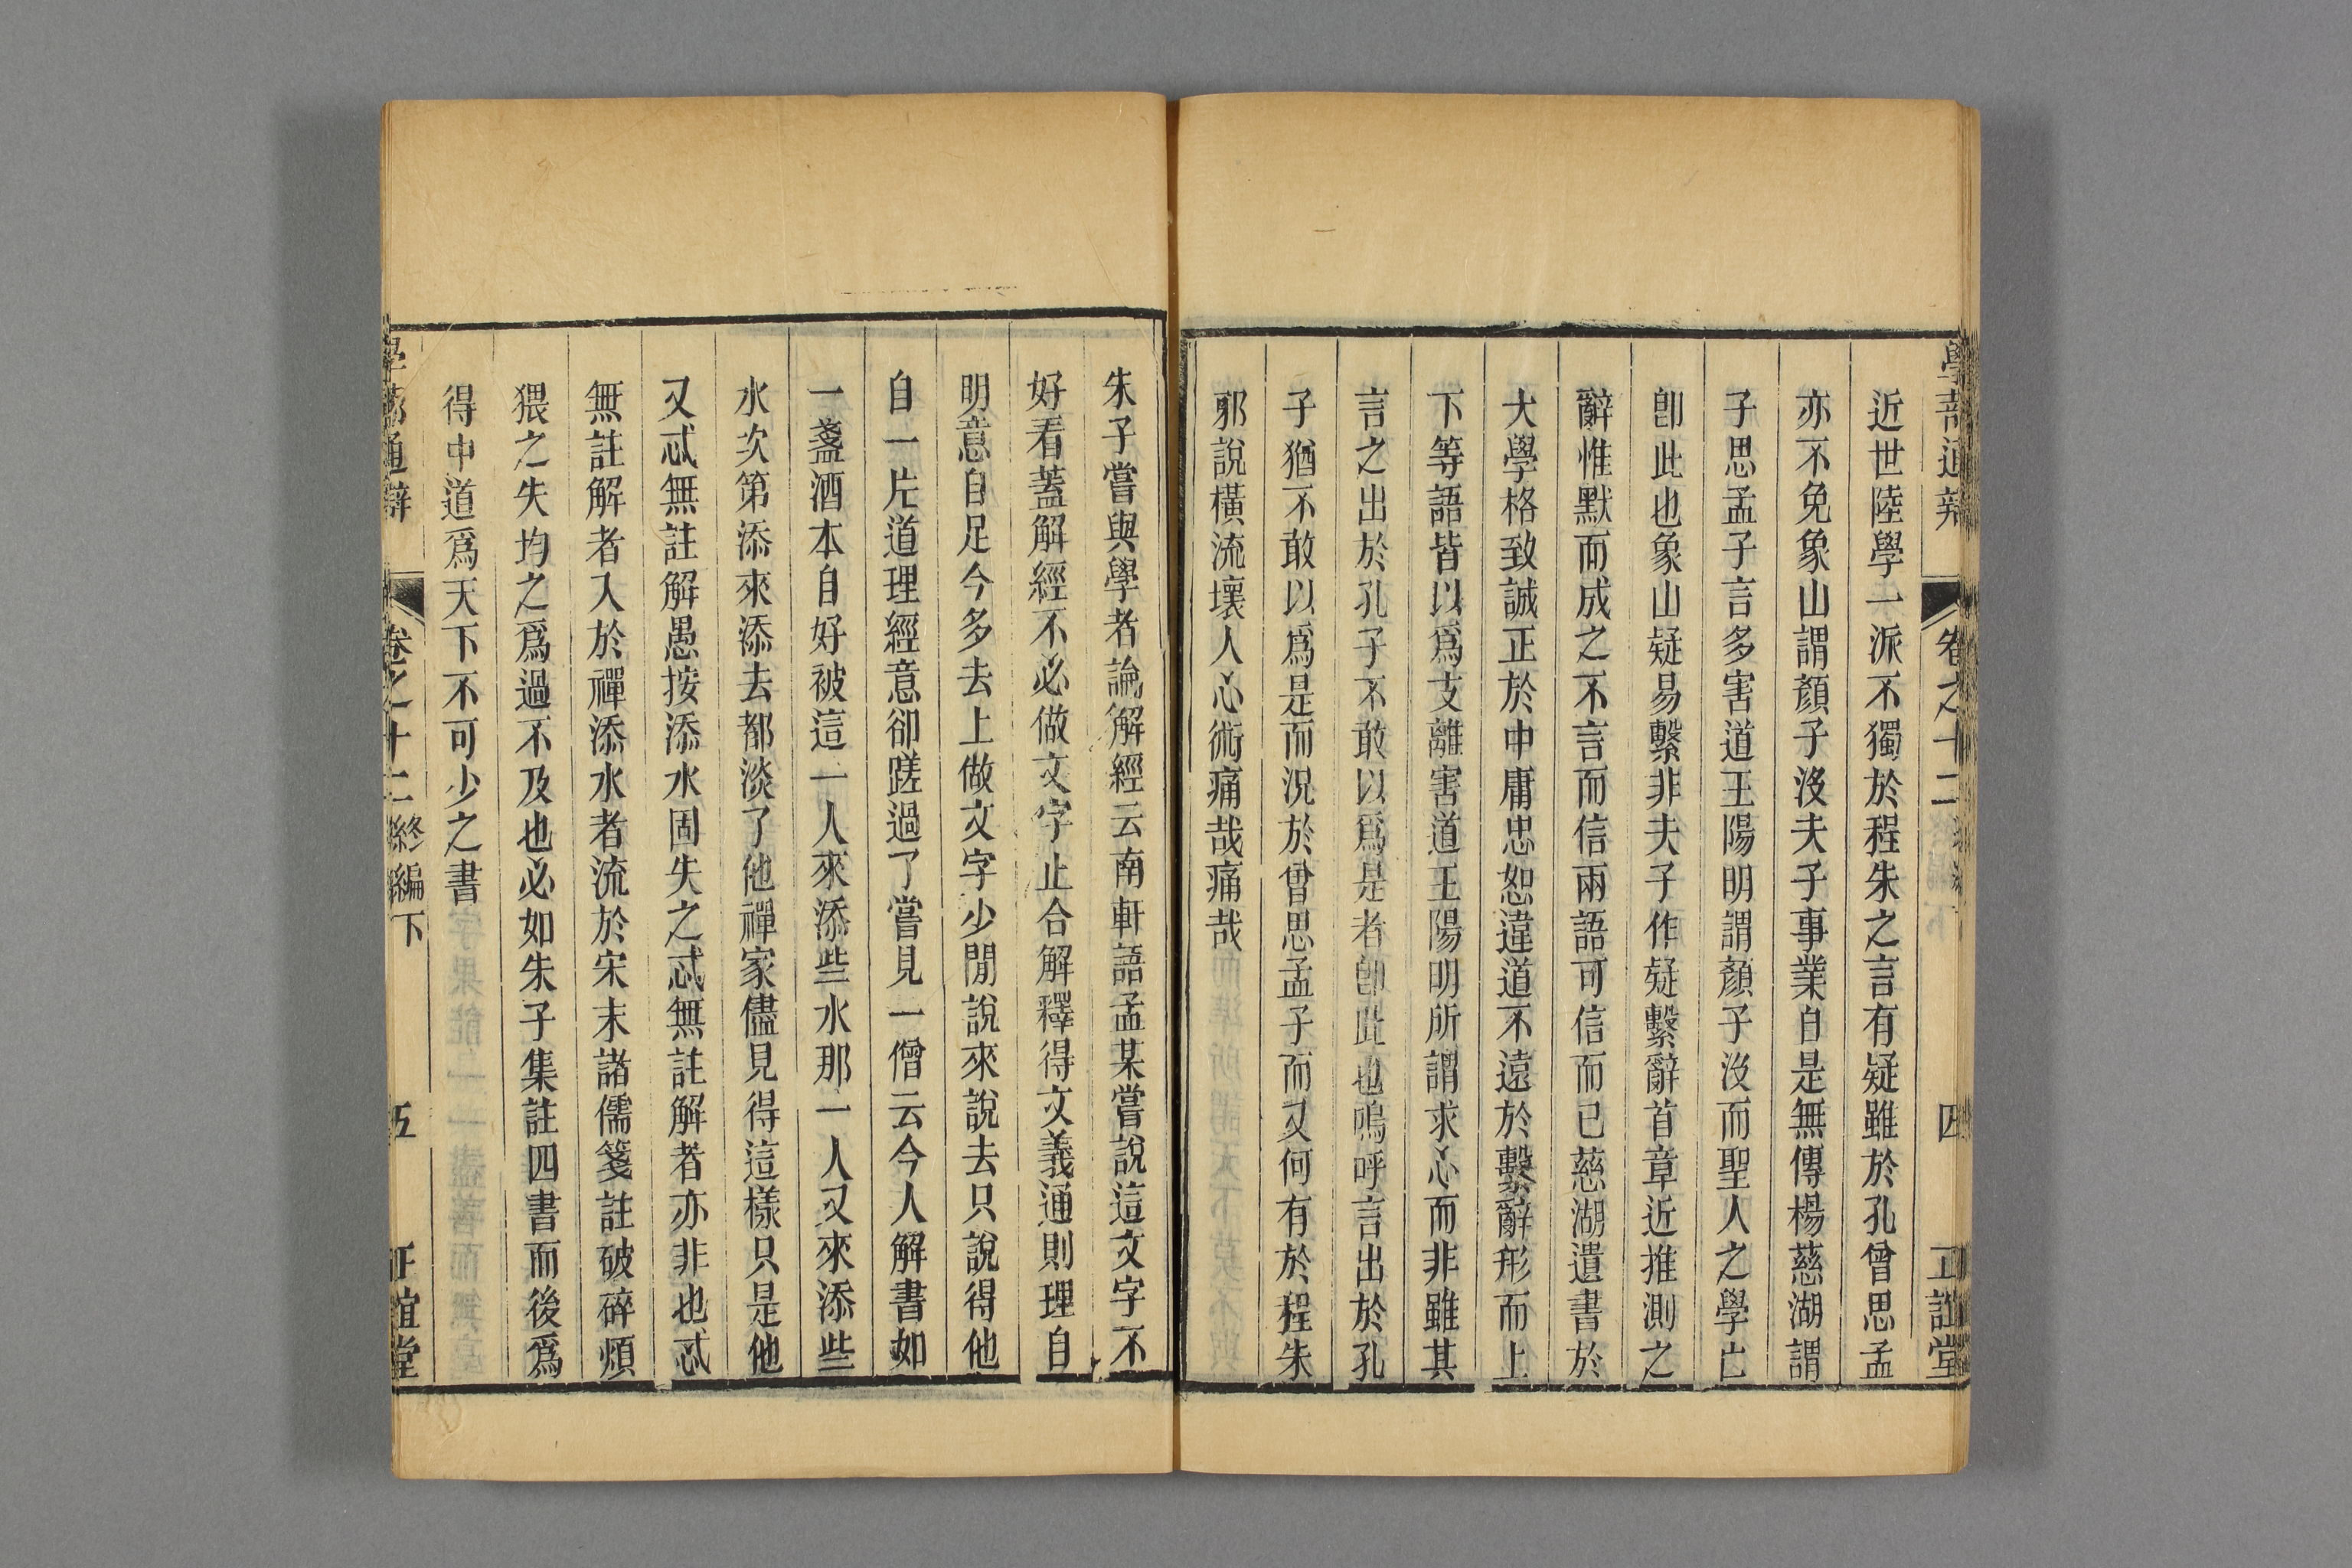 學蔀通辨 卷之十二 四 正誼堂
近世陸學一派不獨於程朱之言有疑雖於孔曾思孟
亦不免象山謂顏子沒夫子事業自是無傳楊慈湖謂
子思孟子言多害道王陽明謂顏子沒而聖人之學亡
卽此也象山疑易繫非夫子作疑繫辭首章近推測之
辭惟默而成之不言而信兩語可信而已慈湖遺書於
大學格致誠正於中庸忠恕違道不遠於繫辭形而上
下等語皆以爲支離害道王陽明所謂求心而非雖其
言之出於孔子不敢以爲是者卽此也嗚呼言出於孔
子猶不敢以爲是而況於曾思孟子而又何有於程朱
邪說橫流壞人心術痛哉痛哉
朱子嘗與學者論解經云南軒語孟某嘗說這文字不
好看蓋解經不必做文字止合解釋得文義通則理自
明意自足今多去上做文字少閒說來說去只說得他
自一片道理經意卻蹉過了嘗見一僧云今人解書如
一盞酒本自好被這一人來添些水那一人又來添些
水次第添來添去都淡了他禪家儘見得這樣只是他
又忒無註解愚按添水固失之忒無註解者亦非也忒
無註解者入於禪添水者流於宋末諸儒箋註破碎煩
猥之失均之爲過不及也必如朱子集註四書而後爲
得中道爲天下不可少之書
學蔀通辯 卷之十二 終編下 五 正誼堂